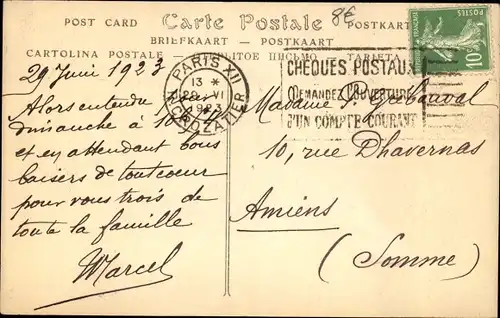 8€
POST CARD Carte Postale POSTKART
BRIEFKAART - POSTKAART
CARTOLINA POSTALE ПИСЬМО TARJETA
29 Juin 1923
Alors entendu
dimanche à
et en attendant bons
baisers de tout coeur
pour vous trois de
toute la famille
Marcel
PARIS XII
13 *
29 VI
1923
R. CROZATIER
CHEQUES POSTAUX
DEMANDEZ L'OUVERTURE
D'UN COMPTE COURANT
POSTES
10c
Madame
10, rue Dhavernas
Amiens
(Somme)